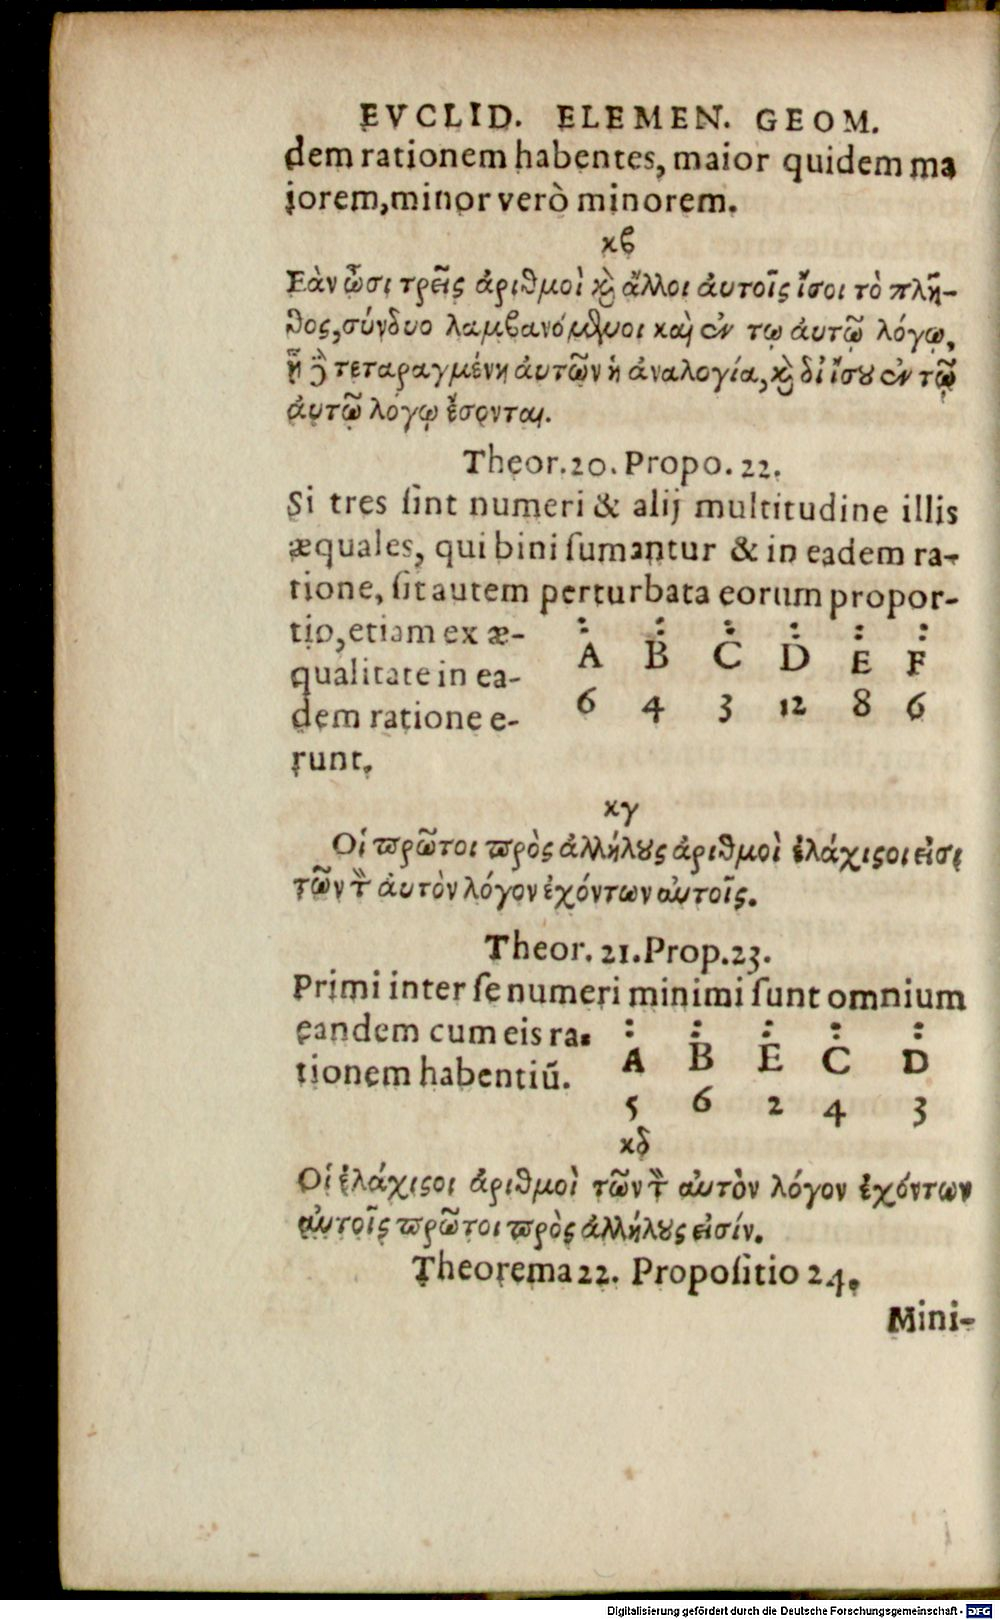 EVCLID. ELEMEN. GEOM.
dem rationem habentes, maior quidem ma
iorem, minor verò minorem.
κϐ
Εὰν ὦσι τρεῖς ἀριθμοὶ ϗ ἄλλοι ἀυτοῖς ἴσοι τὸ πλῆ-
θος, σύνδυο λαμϐανόμενοι καὶ ἐν τῳ ἀυτῷ λόγῳ,
ᾖ δὲ τεταραγμένη ἀυτῶν ἡ ἀναλογία, ϗ δἰ ἴσȣ ἐν τῷ
ἀυτῷ λόγῳ ἔσονται.
Theor. 20. Propo. 22.
Si tres ſint numeri & alij multitudine illis
æquales, qui bini ſumantur & in eadem ra-
tione, ſit autem perturbata eorum propor-
tio, etiam ex æ-
qualitate in ea-
dem ratione e-
runt.
: : : : : :
A B C D E F
6 4 3 12 8 6
κγ
Οἱ ϖρῶτοι ϖρὸς ἀλλήλȣς ἀριθμοὶ ἐλάχιϛοι εἰσι
τῶν τὸν ἀυτὸν λόγον ἐχόντων αὐτοῖς.
Theor. 21. Prop. 23.
Primi inter ſe numeri minimi ſunt omnium
eandem cum eis ra-
tionem habentiũ.
: : : : :
A B E C D
5 6 2 4 3
κδ
Οἱ ἐλάχιϛοι ἀριθμοὶ τῶν τὸν αὐτὸν λόγον ἐχόντων
αὐτοῖς ϖρῶτοι ϖρὸς ἀλλήλȣς εἰσίν.
Theorema 22. Propoſitio 24.
Mini-
Digitalisierung gefördert durch die Deutsche Forschungsgemeinschaft - DFG